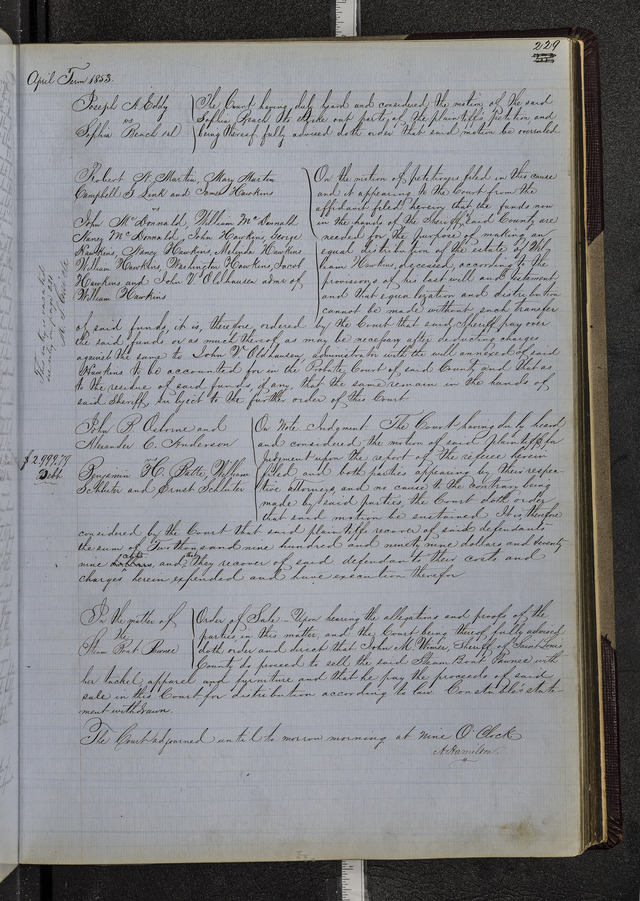 229
April Term 1853.
Joseph A. Eddy
vs
Sophia Beach et al
The Court having duly heard and considered the motion of the said
Sophia Beach to strike out parts of the plaintiff's Petition, and
being thereof fully advised doth order that said motion be overruled
Robert N. Martin, Mary Martin
Campbell S. Link and James Hawkins
vs
John McDonnald, William McDonnald
Nancy McDonnald, John Hawkins, George
Hawkins, Nancy Hawkins, Melinda Hawkins
William Hawkins, Washington Hawkins, Jacob
Hawkins and John V. Oldhausen admr of
William Hawkins
On the motion of petitioners filed in this cause
and it appearing to the Court from the
affidavit filed herein that the funds now
in the hands of the Sheriff said County are
needed for the purpose of making an
equal distribution of the estate of Wil-
liam Hawkins, deceased, according to the
provisions of his last will and testament
and that equalization and distribution
cannot be made without such transfer
of said funds, it is, therefore, ordered by the Court that said Sheriff pay over
the said funds or as much thereof as may be necessary after deducting charges
against the same to John V. Oldhausen, administrator with the will annexed of said
Hawkins to be accounted for in the Probate Court of said County and that as
to the residue of said funds, if any, that the same remain in the hands of
said Sheriff, subject to the further order of this Court
$2,999.79
Debt
John P. Osborne and
Alexander C. Anderson
vs
Benjamin H. Batte, William
Schluter and Ernst Schluter
On Note Judgment The Court having duly heard
and considered the motion of said Plaintiffs for
Judgment upon the report of the referee herein
filed and both parties appearing by their respec-
tive attorneys, and no cause to the contrary being
made by said parties, the Court doth order
that said motion be sustained It is therefore
considered by the Court that said plaintiffs recover of said defendants,
the sum of Two thousand nine hundred and ninety nine dollars and seventy
nine cents, and they recover of said defendants their costs and
charges herein expended and have execution therefor
In the matter of
the
Steam Boat Pawnee
Order of Sale - Upon hearing the allegations and proofs of the
parties in this matter, and the Court being thereof fully advised
doth order and direct that John M. Wimer, Sheriff of Saint Louis
County do proceed to sell the said Steam Boat Pawnee with
her tackel, apparel and furniture and that he pay the proceeds of said
sale in this Court for distribution according to law. Constable's state-
ment withdrawn.
The Court adjourned until to morrow morning at nine O'Clock
A. Hamilton